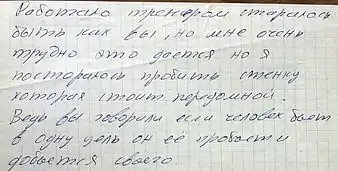 Работаю тренером стараюсь
быть как вы, но мне очень
трудно это дается но я
постараюсь пробить стенку
которая стоит передомной.
Ведь вы говорили если человек бьет
в одну цель он её пробьет и
добьется своего.